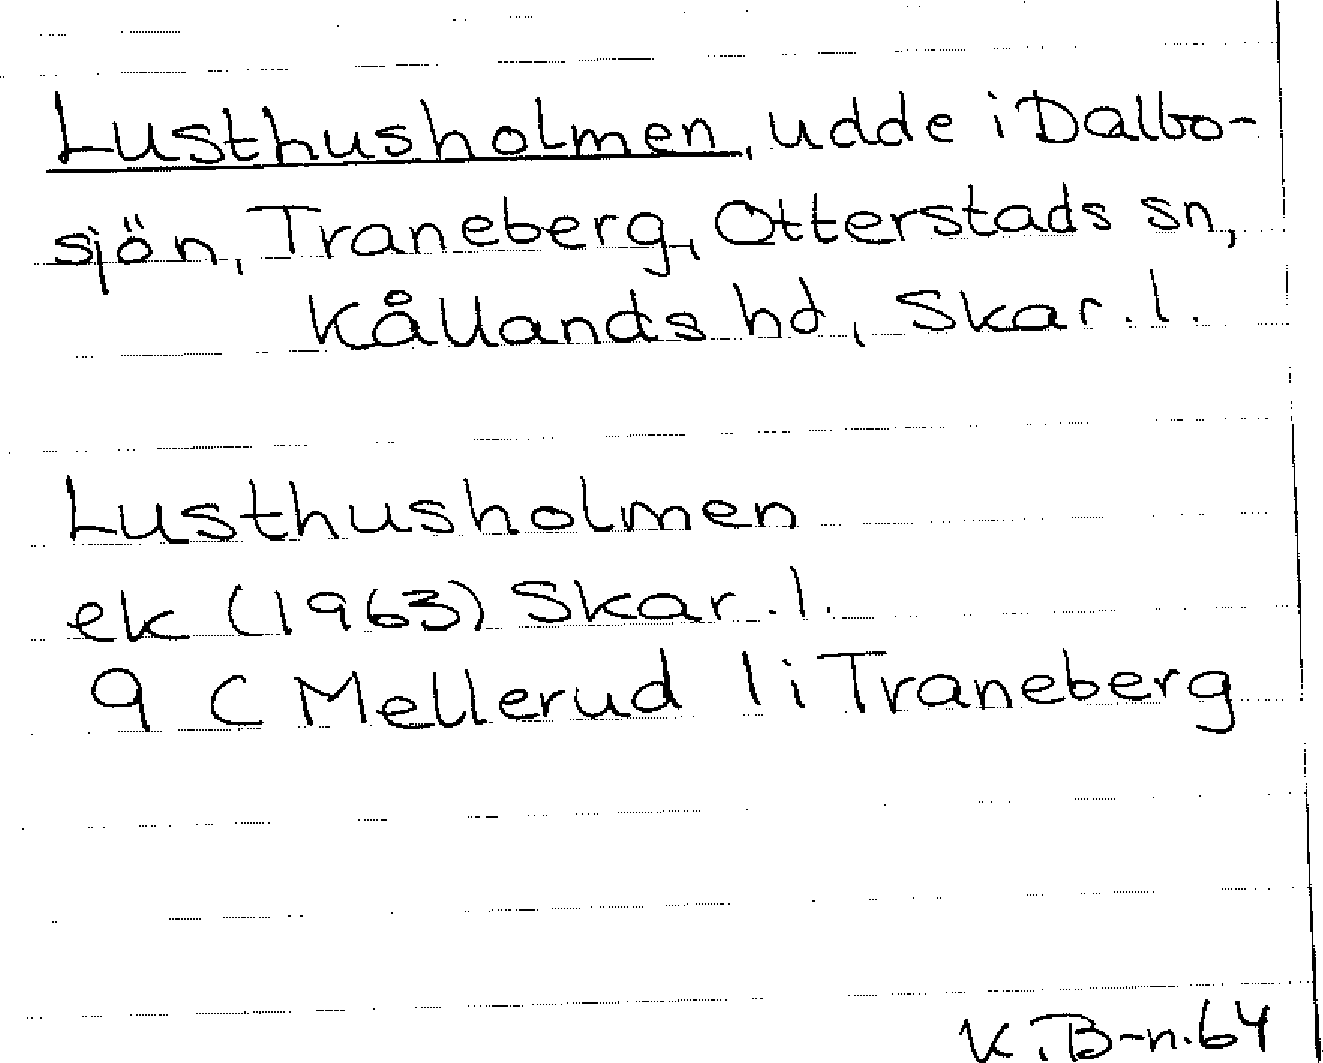 Lusthusholmen, udde i Dalbo-
sjön, Traneberg, Otterstads sn,
Kållands hd, Skar. l.
Lusthusholmen
ek (1963) Skar. l.
9 C Mellerud 1 i Traneberg
K. B-n. 64